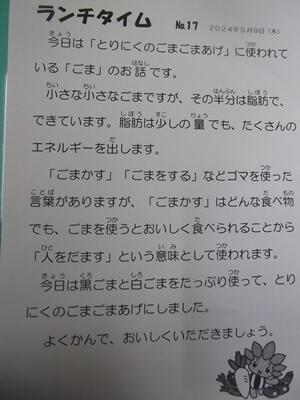 ランチタイム No.17 2024年5月9日（木）
今日は「とりにくのごまごまあげ」に使われて
いる「ごま」のお話です。
小さな小さなごまですが、その半分は脂肪で、
できています。脂肪は少しの量でも、たくさんの
エネルギーを出します。
「ごまかす」「ごまをする」などゴマを使った
言葉がありますが、「ごまかす」はどんな食べ物
でも、ごまを使うとおいしく食べられることから
「人をだます」という意味として使われます。
今日は黒ごまと白ごまをたっぷり使って、とり
にくのごまごまあげにしました。
よくかんで、おいしくいただきましょう。